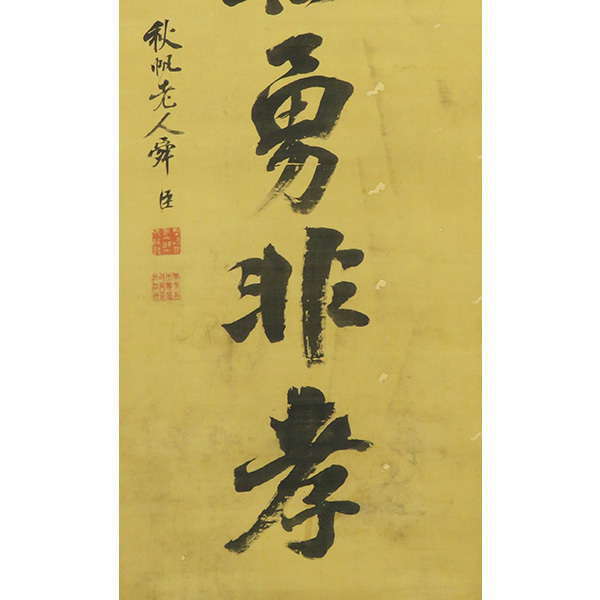 勇非孝
秋帆老人舜臣